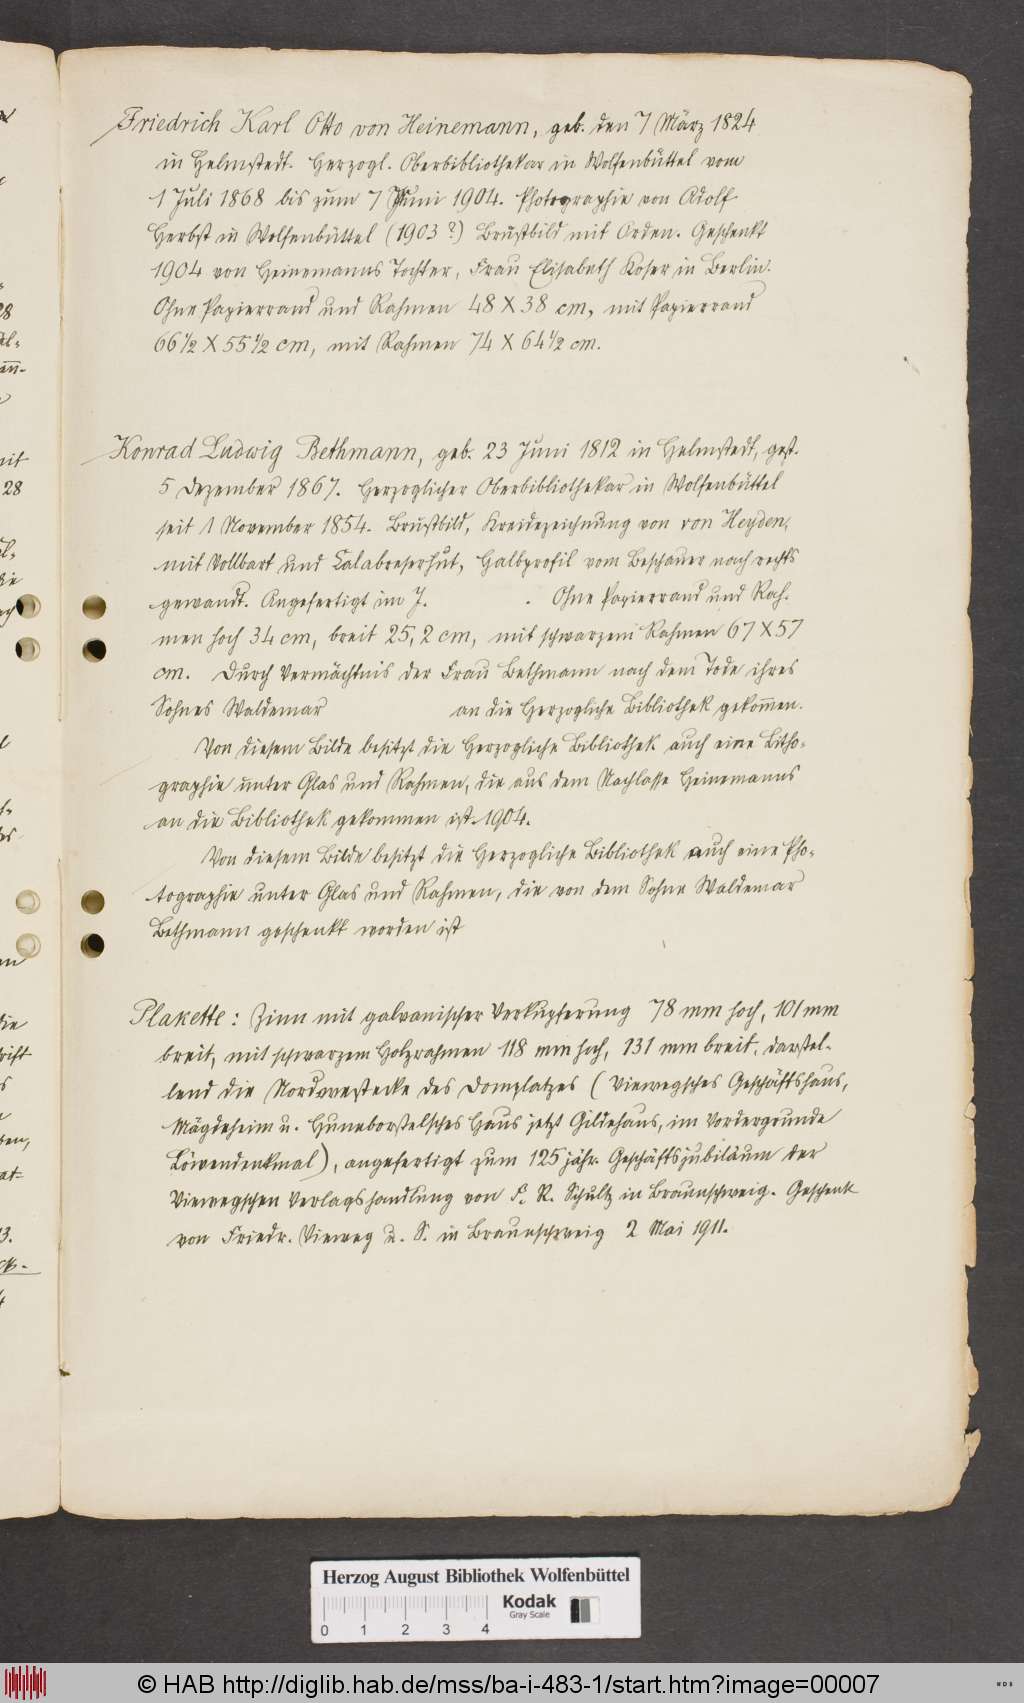 Friedrich Karl Otto von Heinemann, geb. den 7 März 1824
in Helmstedt. Herzogl. Oberbibliothekar in Wolfenbüttel vom
1 Juli 1868 bis zum 7 Juni 1904. Photographie von Adolf
Herbst in Wolfenbüttel (1903?) Brustbild mit Orden. Geschenkt
1904 von Heinemanns Tochter, Frau Elisabeth Koser in Berlin.
Ohne Papierrand und Rahmen 48 X 38 cm, mit Papierrand
66 1/2 X 55 1/2 cm, mit Rahmen 74 X 64 1/2 cm.
Konrad Ludwig Bethmann, geb. 23 Juni 1812 in Helmstedt, gest.
5 Dezember 1867. Herzoglicher Oberbibliothekar in Wolfenbüttel
seit 1 November 1854. Brustbild, Kreidezeichnung von von Heyden,
mit Vollbart und Calabreserhut, Halbprofil vom Beschauer nach rechts
gewandt. Angefertigt im J. . Ohne Papierrand und Rah-
men hoch 34 cm, breit 25,2 cm, mit schwarzem Rahmen 67 X 57
cm. Durch Vermächtnis der Frau Bethmann nach dem Tode ihres
Sohnes Waldemar an die Herzogliche Bibliothek gekom̄en.
Von diesem Bilde besitzt die Herzogliche Bibliothek auch eine Litho-
graphie unter Glas und Rahmen, die aus dem Nachlasse Heinemanns
an die Bibliothek gekommen ist. 1904.
Von diesem Bilde besitzt die Herzogliche Bibliothek auch eine Pho-
tographie unter Glas und Rahmen, die von dem Sohne Waldemar
Bethmann geschenkt worden ist
Plakette: Zinn mit galvanischer Verkupferung 78 mm hoch, 101 mm
breit, mit schwarzem Holzrahmen 118 mm hoch, 131 mm breit, darstel-
lend die Nordwestecke des Domplatzes (Viewegsches Geschäftshaus,
Mägdeheim u. Huneborstelsches Haus jetzt Gildehaus, im Vordergrunde
Löwendenkmal), angefertigt zum 125 jähr. Geschäftsjubiläum der
Viewegschen Verlagshandlung von F. R. Schultz in Braunschweig. Geschenk
von Friedr. Vieweg u. S. in Braunschweig 2 Mai 1911.
Herzog August Bibliothek Wolfenbüttel
Kodak
Gray Scale
0 1 2 3 4
© HAB http://diglib.hab.de/mss/ba-i-483-1/start.htm?image=00007